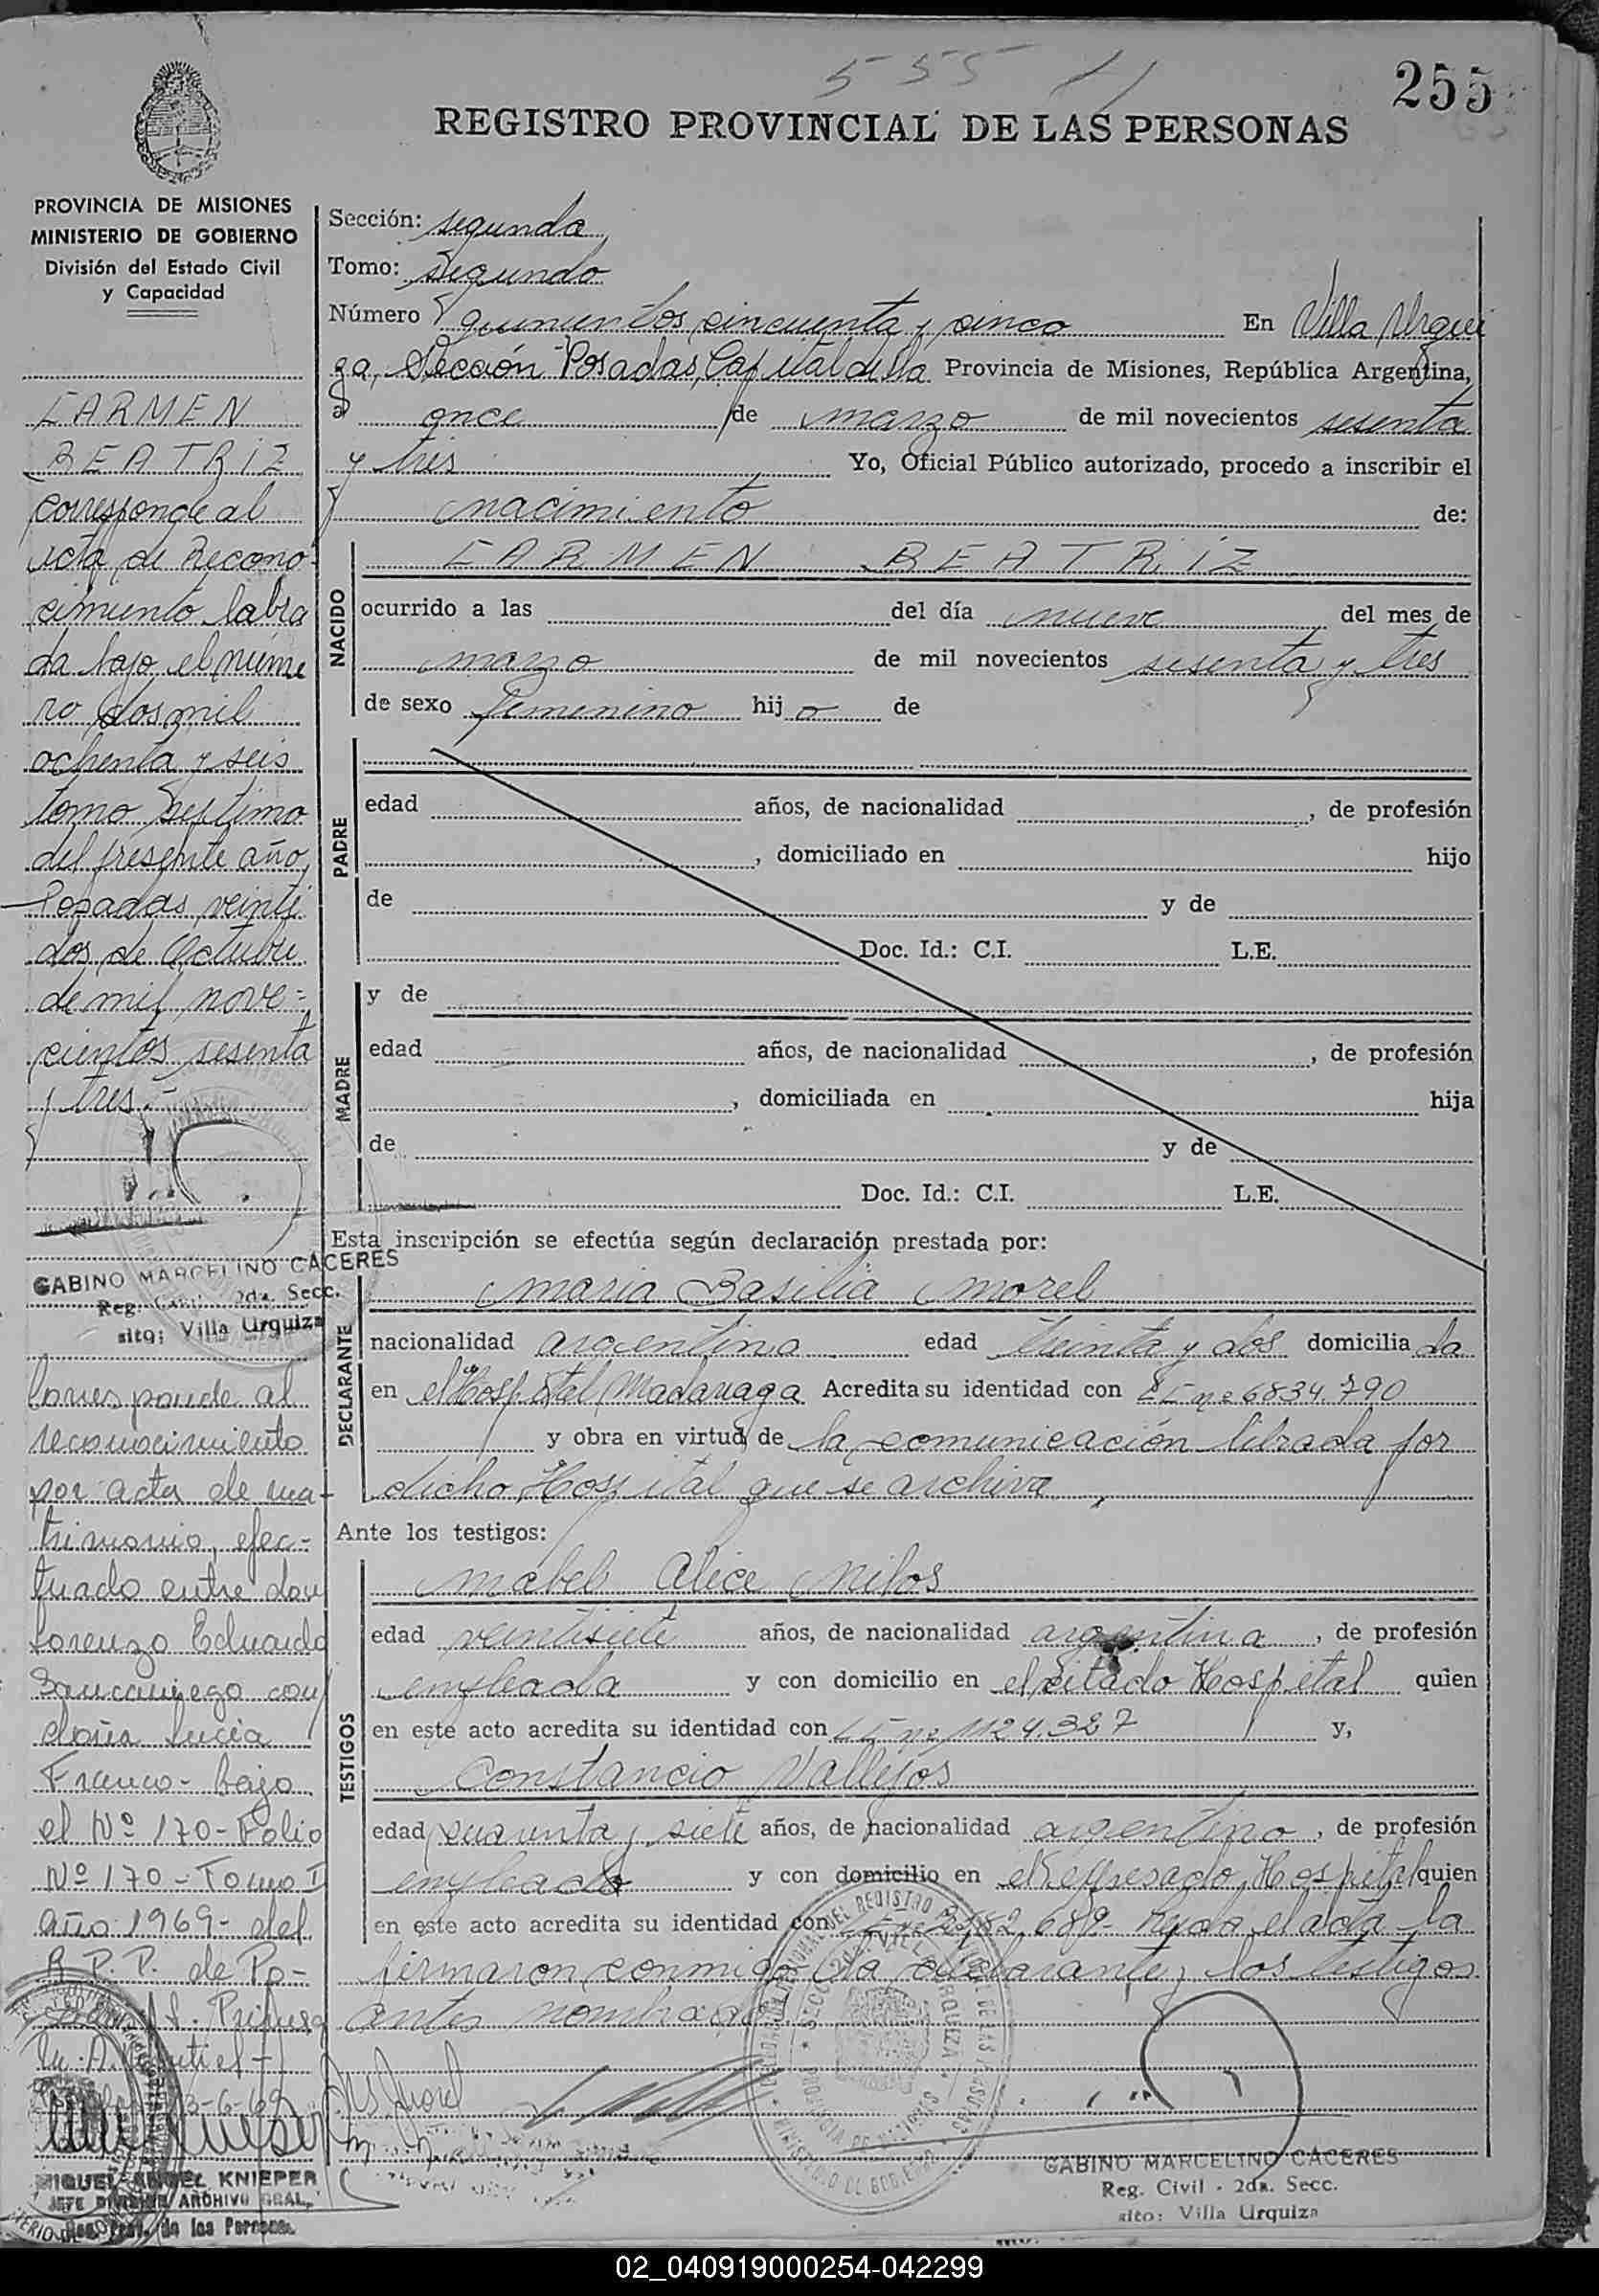 555
255
REGISTRO PROVINCIAL DE LAS PERSONAS
PROVINCIA DE MISIONES
MINISTERIO DE GOBIERNO
División del Estado Civil
y Capacidad
CARMEN
BEATRIZ
corresponde al
acta de Recono-
cimiento labra
da bajo el núme
ro dos mil
ochenta y seis
tomo septimo
del presente año,
Posadas, veinti
dos de Octubre
de mil nove=
cientos sesenta
y tres.-
GABINO MARCELINO CACERES
Reg. Civil 2da. Secc.
sito: Villa Urquiza
Corresponde al
reconocimiento
por acta de ma-
trimonio, efec-
tuado entre don
Lorenzo Eduardo
con
doña Lucia
Franco - bajo
el Nº 170 - Folio
Nº 170 - Tomo I
año 1969 - del
R.P.P. de Po-
MIGUEL ANGEL KNIEPER
JEFE DIVISION ARCHIVO GRAL.
Reg. Prov. de las Personas
Sección: segunda
Tomo: segundo
Número quinientos cincuenta y cinco En Villa Urqui
za, Sección Posadas, Capital de la Provincia de Misiones, República Argentina,
a once de marzo de mil novecientos sesenta
y tres Yo, Oficial Público autorizado, procedo a inscribir el
nacimiento de:
NACIDO
CARMEN BEATRIZ
ocurrido a las del día nueve del mes de
marzo de mil novecientos sesenta y tres
de sexo femenino hij a de
PADRE
edad años, de nacionalidad , de profesión
, domiciliado en hijo
de y de
Doc. Id.: C.I. L.E.
MADRE
y de
edad años, de nacionalidad , de profesión
, domiciliada en hija
de y de
Doc. Id.: C.I. L.E.
Esta inscripción se efectúa según declaración prestada por:
DECLARANTE
Maria Basilia Morel
nacionalidad argentina edad treinta y dos domicilia da
en el Hospital Madariaga Acredita su identidad con nº 6834.790
y obra en virtud de la comunicación librada por
dicho Hospital que se archiva
Ante los testigos:
TESTIGOS
Mabel Alice Milos
edad veintisiete años, de nacionalidad argentina, de profesión
empleada y con domicilio en el citado Hospital quien
en este acto acredita su identidad con nº 1124.327 y,
Constancio Vallejos
edad cuarenta y siete años, de nacionalidad argentino, de profesión
empleado y con domicilio en el expresado Hospital quien
en este acto acredita su identidad con leyda el acta la
firmaron conmigo la declarante y los testigos
antes nombrados.
GABINO MARCELINO CACERES
Reg. Civil - 2da. Secc.
sito: Villa Urquiza
02_040919000254-042299